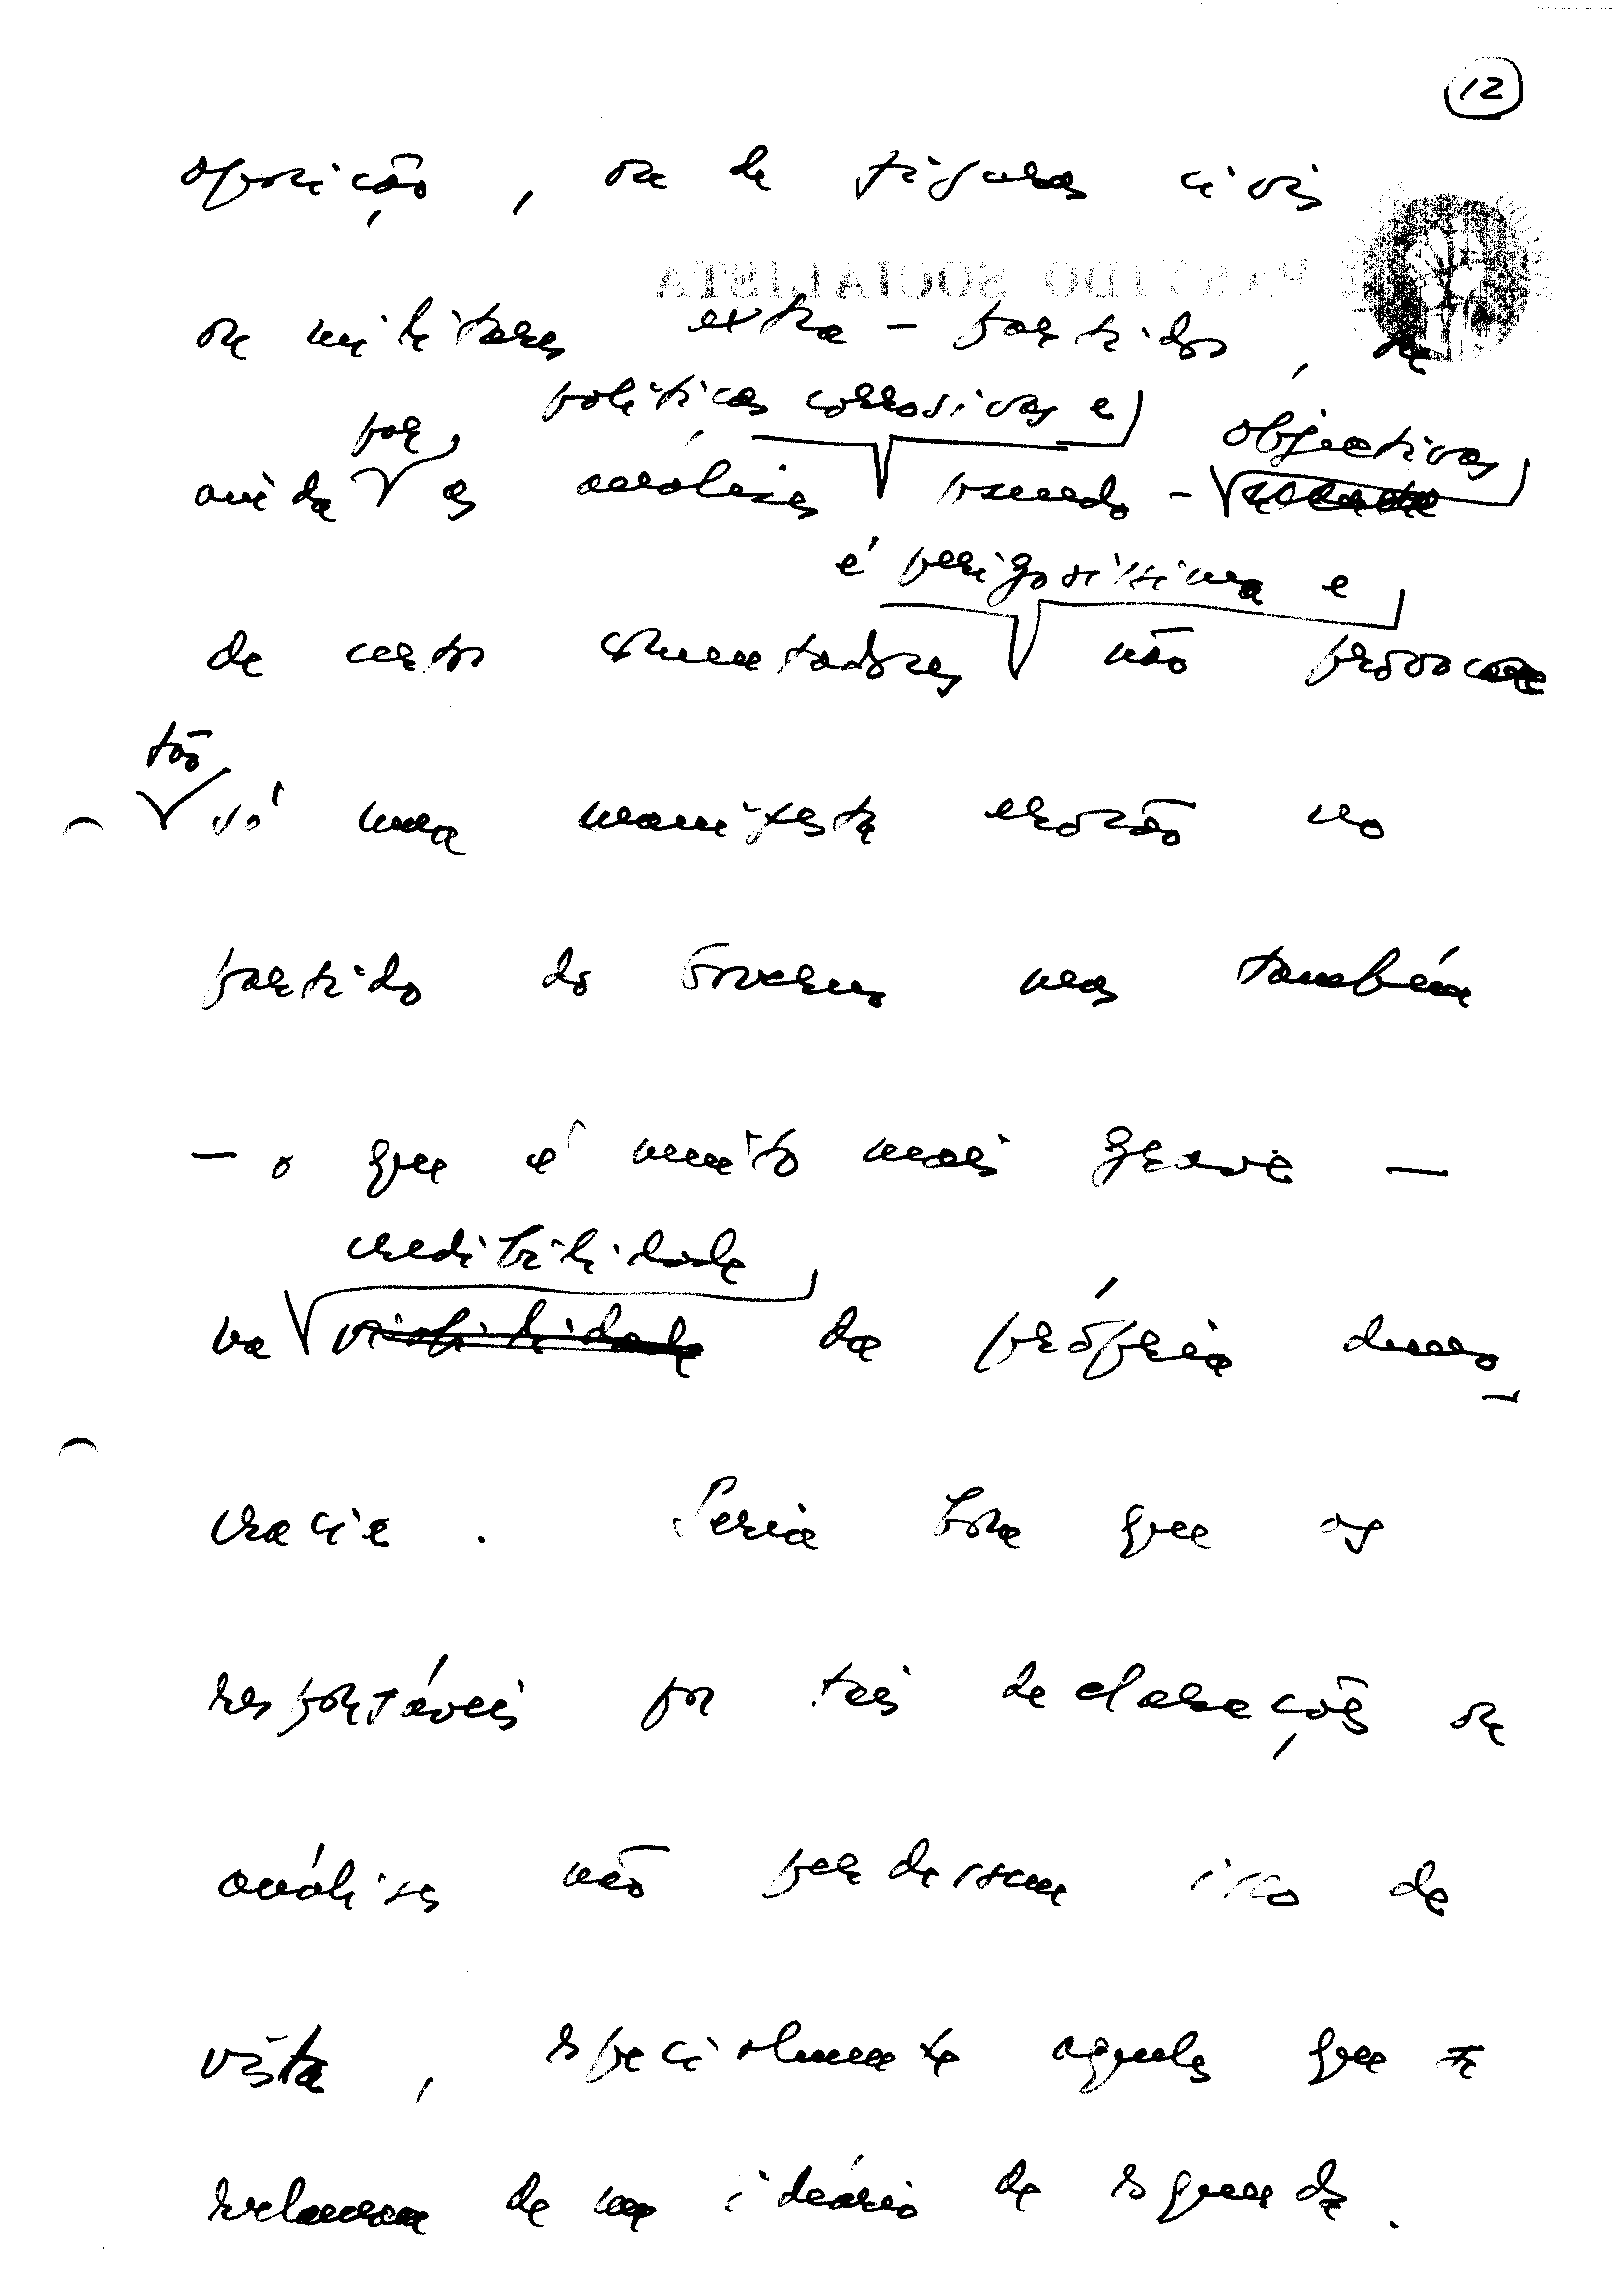 12
oposição, ou de figuras civis
PARTIDO SOCIALISTA
ou militares extra-partidos, ou
políticas corrosivas e
por objectivas
ainda as análises pseudo-
é perigosíssima e
de certos comentadores não provoca
tão
só uma manifesta erosão no
partido do Governo mas também
- o que é muito mais grave -
credibilidade
na viabilidade da própria demo-
cracia. Seria bom que os
responsáveis por tais declarações ou
análises não perdessem isso de
vista, especialmente aqueles que se
reclamam de um ideário de esquerda.